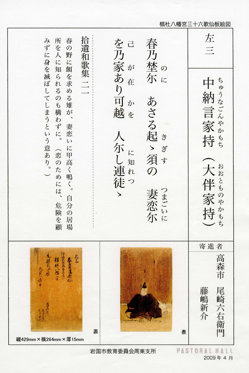 椙杜八幡宮三十六歌仙板絵図
左三
ちゅうなごんやかもち
おおとものやかもち
中納言家持（大伴家持）
のに
きぎす
つまごいに
春乃埜尓 あさる起ゝ須の 妻恋尓
己が在かを
に知れつ
を乃家あり可越 人尓し連徒ゝ
拾遺和歌集 二一
春の野に餌を求める雉が、妻恋いに甲高く鳴く。自分の居場
所を人に知られるのも構わずに。（恋のためには、危険を顧
みずに身を滅ぼしてしまうという意あり。）
寄進者
高森市 尾崎六右衛門
藤嶋新介
裏
表
縦429mm×横264mm×厚15mm
岩国市教育委員会周東支所
PASTORAL HALL
2009年4月